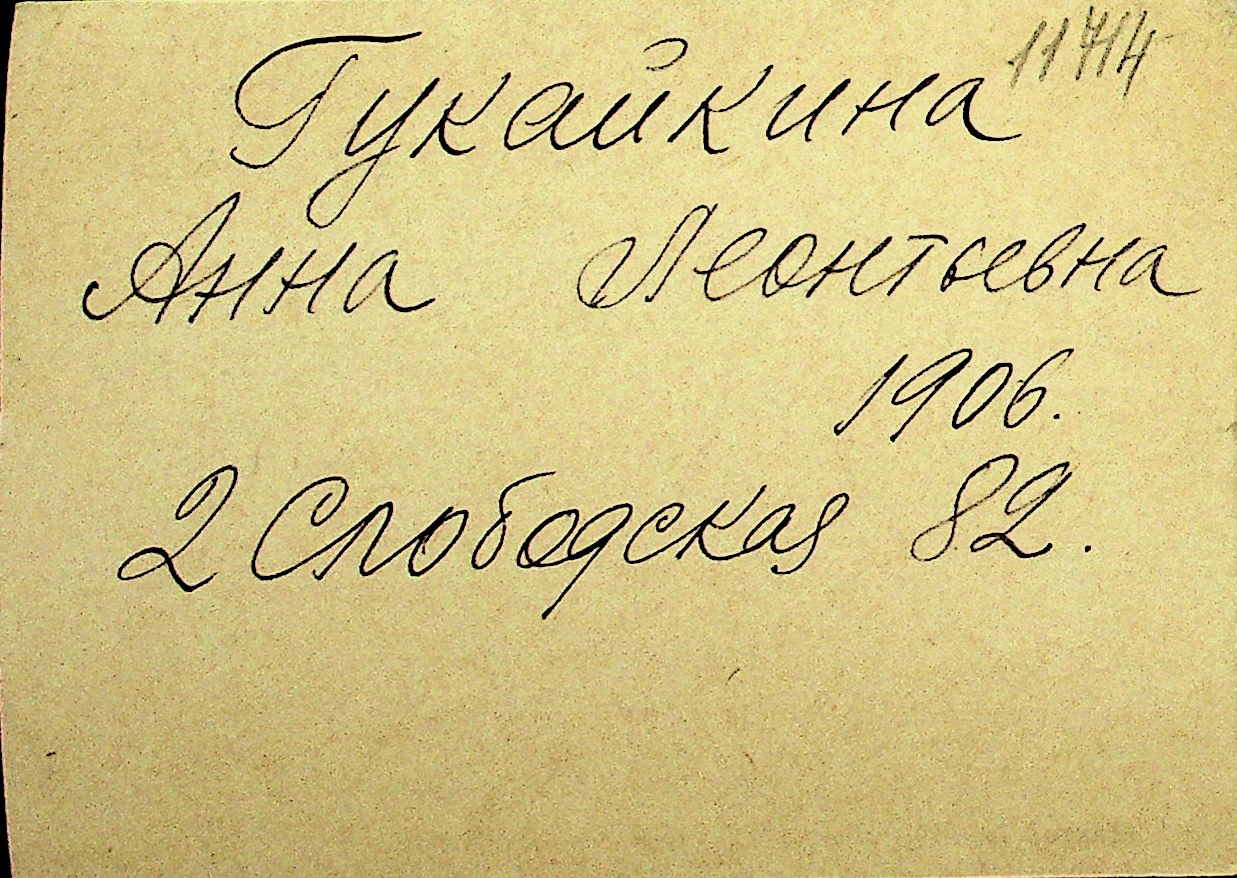 11714
Гукайкина
Анна Леонтьевна
1906.
2 Слободская 82.